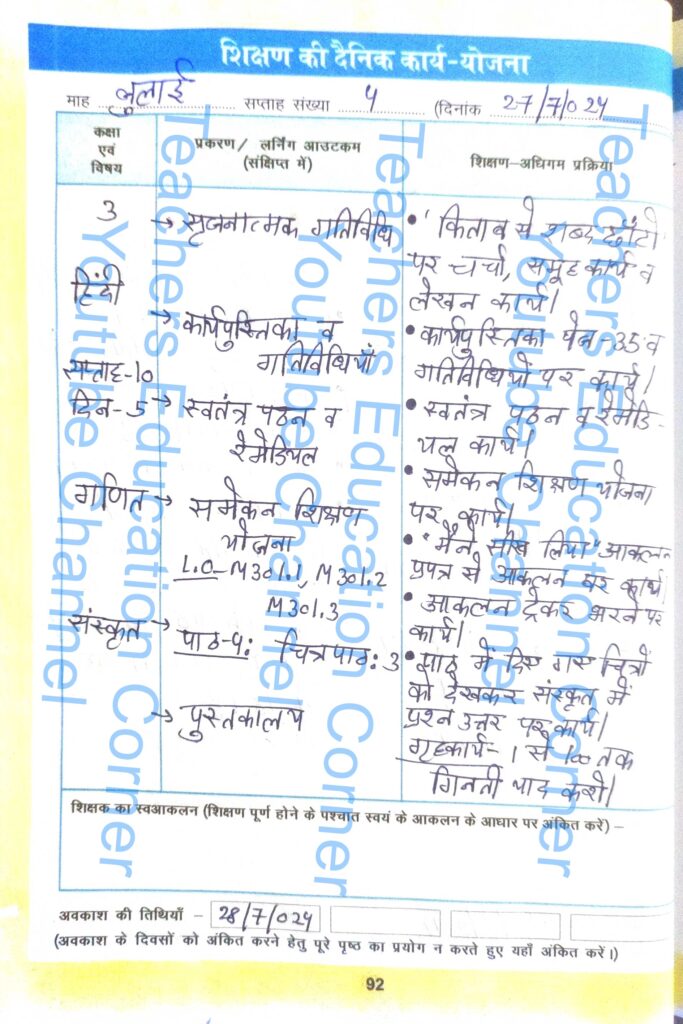 शिक्षण की दैनिक कार्य-योजना
माह जुलाई सप्ताह संख्या 4 (दिनांक 27/7/024
कक्षा
एवं
विषय
प्रकरण/ लर्निंग आउटकम
(संक्षिप्त में)
शिक्षण-अधिगम प्रक्रिया
3
हिंदी
सप्ताह-10
दिन-5
→ सृजनात्मक गतिविधि
→ कार्यपुस्तिका व
गतिविधियाँ
→ स्वतंत्र पठन व
रेमेडियल
गणित → समेकन शिक्षण
योजना
L.O-M301.1, M301.2
M301.3
संस्कृत →
पाठ-4: चित्रपाठ: 3
→ पुस्तकालय
• 'किताब से शब्द छाँटो'
पर चर्चा, समूह कार्य व
लेखन कार्य।
• कार्यपुस्तिका पेज-35 व
गतिविधियों पर कार्य।
• स्वतंत्र पठन व रेमेडि-
यल कार्य।
• समेकन शिक्षण योजना
पर कार्य।
• "मैंने सीख लिया" आकलन
प्रपत्र से आकलन पर कार्य।
• आकलन ट्रेकर भरने पर
कार्य।
• पाठ में दिए गए चित्रों
को देखकर संस्कृत में
प्रश्न उत्तर पर कार्य।
गृहकार्य- 1 से 100 तक
गिनती याद करो।
शिक्षक का स्वआकलन (शिक्षण पूर्ण होने के पश्चात स्वयं के आकलन के आधार पर अंकित करें) –
अवकाश की तिथियाँ – 28/7/024
(अवकाश के दिवसों को अंकित करने हेतु पूरे पृष्ठ का प्रयोग न करते हुए यहाँ अंकित करें।)
92
Teachers Education Corner
Youtube Channel
Teachers Education Corner
Youtube Channel
Teachers Education Corner
Youtube Channel